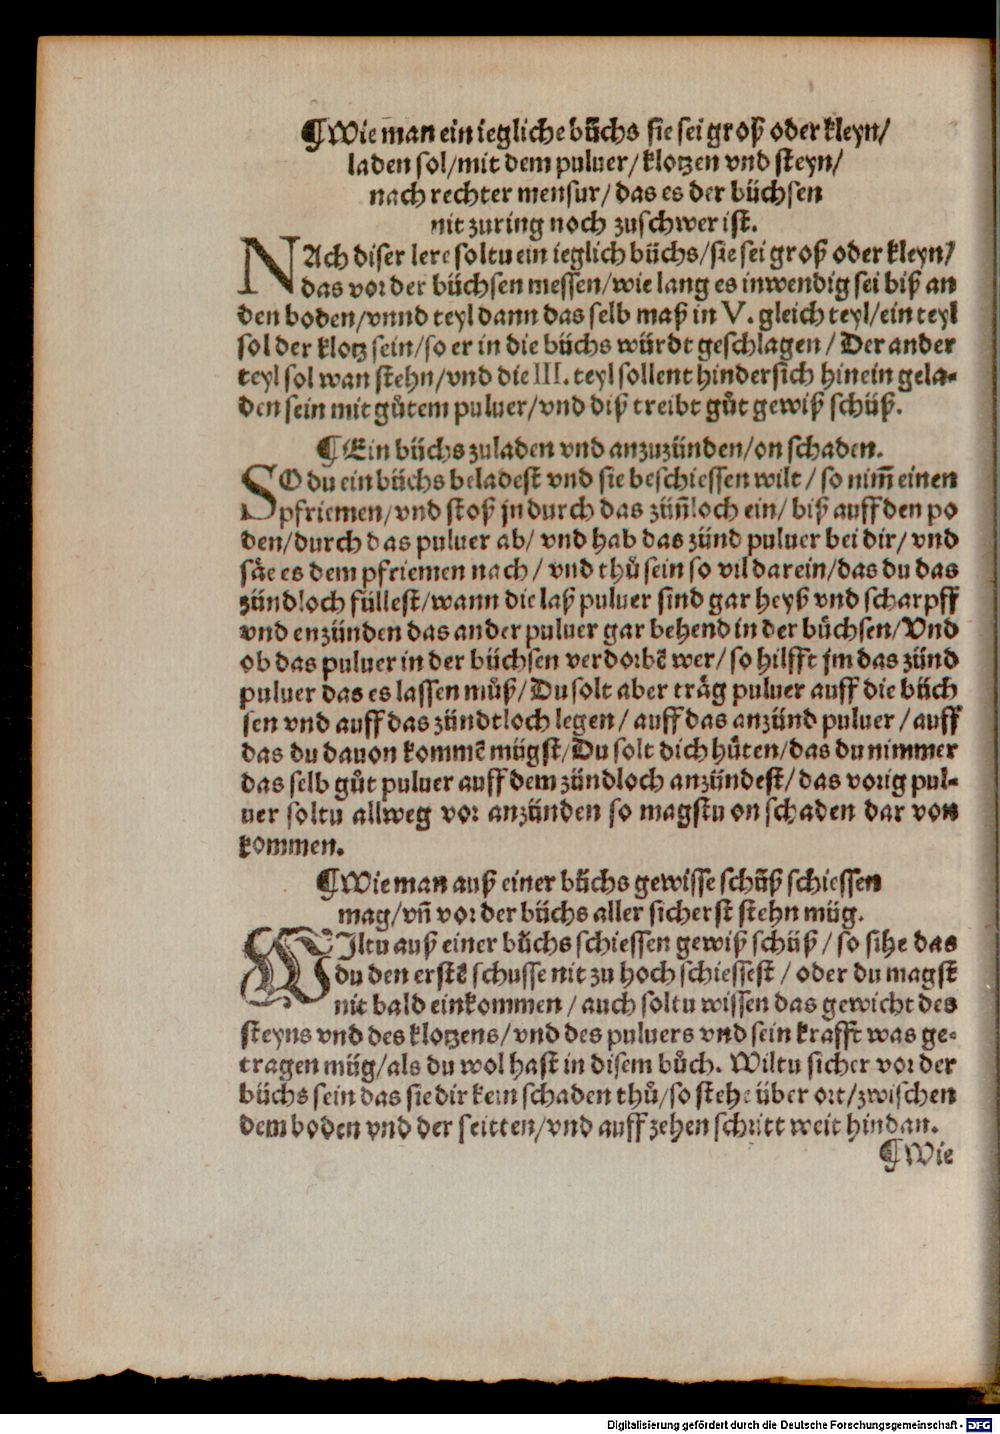 ¶Wie man ein iegliche buͤchs sie sei groß oder kleyn/
laden sol/mit dem puluer/klotzen vnd steyn/
nach rechter mensur/das es der büchsen
nit zuring noch zuschwer ist.
NAch diser lere soltu ein ieglich büchs/sie sei groß oder kleyn/
das vor der büchsen messen/wie lang es inwendig sei biß an
den boden/vnnd teyl dann das selb maß in V. gleich teyl/ein teyl
sol der klotz sein/so er in die büchs würdt geschlagen/Der ander
teyl sol wan stehn/vnd die III. teyl sollent hindersich hinein gela-
den sein mit gůtem puluer/vnd diß treibt gůt gewiß schüß.
¶Ein büchs zuladen vnd anzuzünden/on schaden.
SO du ein büchs beladest vnd sie beschiessen wilt/so nim̃ einen
pfriemen/vnd stoß jn durch das zün̄loch ein/biß auff den po
den/durch das puluer ab/vnd hab das zünd puluer bei dir/vnd
säe es dem pfriemen nach/vnd thů sein so vil darein/das du das
zündloch füllest/wann die laß puluer sind gar heyß vnd scharpff
vnd enzünden das ander puluer gar behend in der bůchsen/Vnd
ob das puluer in der büchsen verdorbē wer/so hilfft jm das zünd
puluer das es lassen můß/Du solt aber träg puluer auff die büch
sen vnd auff das zündtloch legen/auff das anzünd puluer/auff
das du dauon kommē mügst/Du solt dich hůten/das du nimmer
das selb gůt puluer auff dem zündloch anzündest/das vorig pul-
uer soltu allweg vor anzünden so magstu on schaden dar von
kommen.
¶Wie man auß einer bůchs gewisse schüß schiessen
mag/vñ vor der büchs aller sicherst stehn müg.
WIltu auß einer bůchs schiessen gewiß schüß/so sihe das
du den erstē schusse nit zu hoch schiessest/oder du magst
nit bald einkommen/auch soltu wissen das gewicht des
steyns vnd des klotzens/vnd des puluers vnd sein krafft was ge-
tragen müg/als du wol hast in disem bůch. Wiltu sicher vor der
büchs sein das sie dir kein schaden thů/so stehe über ort/zwischen
dem boden vnd der seitten/vnd auff zehen schritt weit hindan.
¶Wie
Digitalisierung gefördert durch die Deutsche Forschungsgemeinschaft - DFG